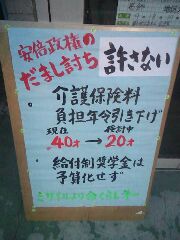 安倍政権の
だまし討ち
許さない
介護保険料
負担年令引き下げ
現在 検討中
40才→20才
給付制奨学金は
予算化せず
ミサイルより命くらし守